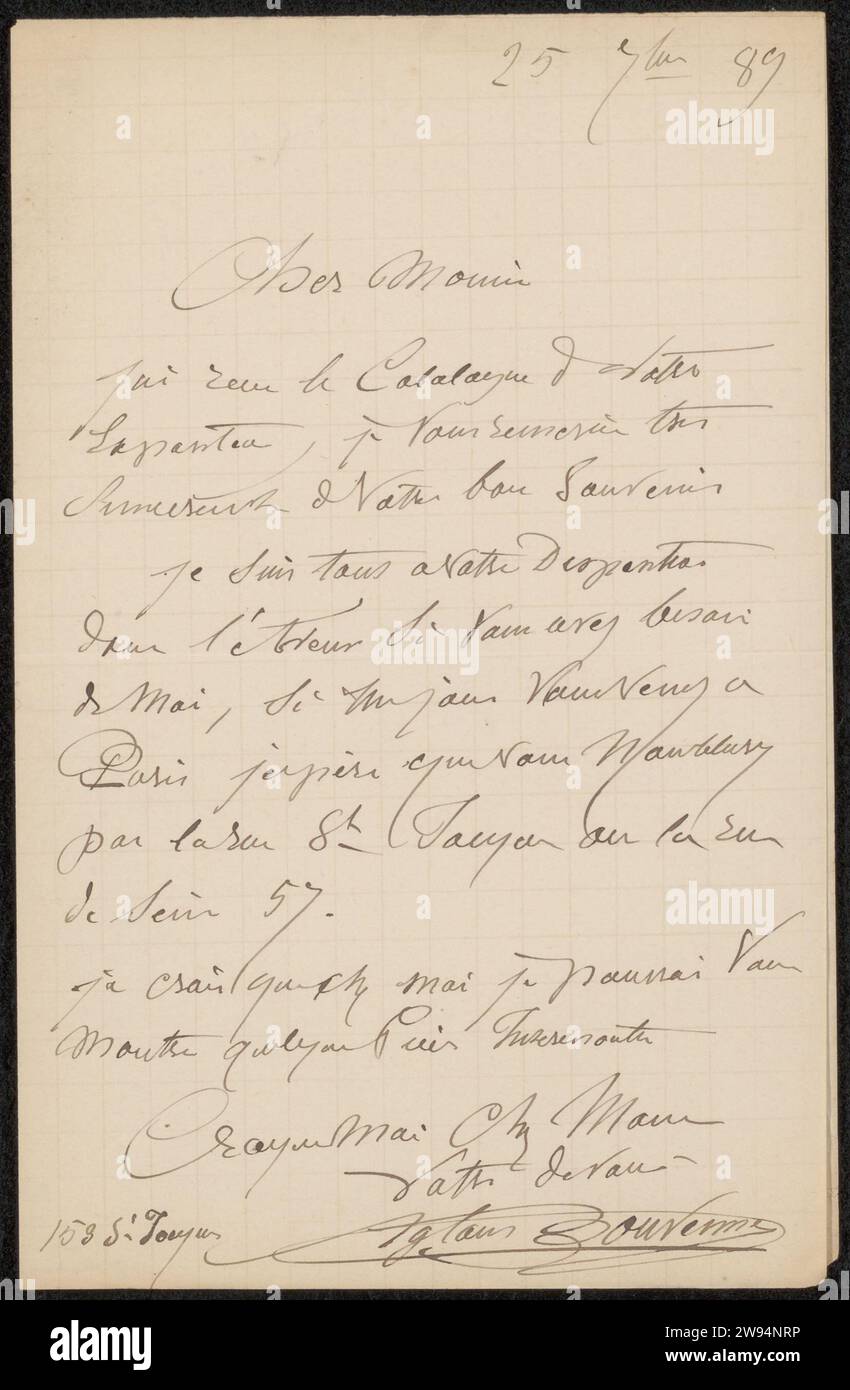 25 7bre 89
Cher Monsieur
j'ai recu le Catalogue de Votre
Exposition, je Vous remercie tres
de Votre bon Souvenir
je suis tous a Votre Disposition
dans Si Vous avez besoin
de Moi, Si un jour Vous Venez a
Paris j'espère que vous N'oublierez
par la rue St Jacques ou la rue
de Seine 57.
je crois que chez moi je pourrai Vous
Montrer quelque Pièces Interessante
Croyez Moi Cher Mons
Votre devoué
Aglaus Bouvenne
153 St Jacques
alamy
Image ID: 2W94NRP
www.alamy.com